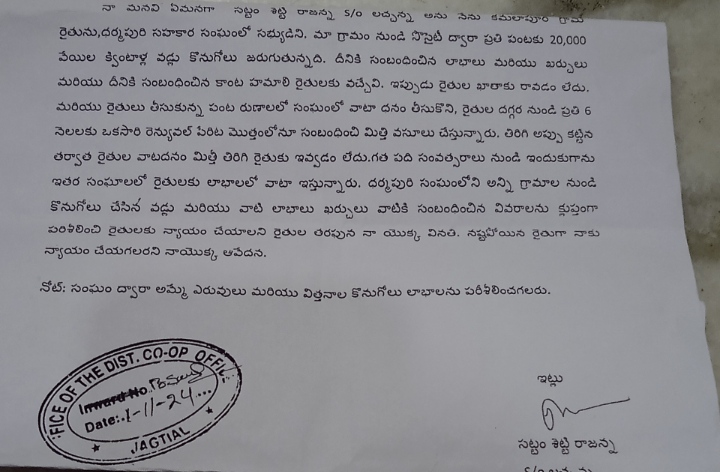 నా మనవి ఏమనగా సట్టం శెట్టి రాజన్న S/O లచ్చన్న అను నేను కమలాపూర్ గ్రామ
రైతును,దర్మపురి సహకార సంఘంలో సభ్యుడిని. మా గ్రామం నుండి సొసైటి ద్వారా ప్రతి పంటకు 20,000
వేయిల క్వింటాళ్ల వడ్లు కొనుగోలు జరుగుతున్నది. దీనికి సంబందించిన లాబాలు మరియు ఖర్చులు
మరియు దీనికి సంబంధించిన కాంట హమాలి రైతులకు వచ్చేవి. ఇప్పుడు రైతుల ఖాతాకు రావడం లేదు.
మరియు రైతులు తీసుకున్న పంట రుణాలలో సంఘంలో వాటా దనం తీసుకొని, రైతుల దగ్గర నుండి ప్రతి 6
నెలలకు ఒకసారి రెన్యువల్ పేరిట మొత్తంలోనూ సంబందించి మిత్తి వసూలు చేస్తున్నారు. తిరిగి అప్పు కట్టిన
తర్వాత రైతుల వాటదనం మిత్తీ తిరిగి రైతుకు ఇవ్వడం లేదు.గత పది సంవత్సరాలు నుండి ఇందుకుగాను
ఇతర సంఘాలలో రైతులకు లాభాలలో వాటా ఇస్తున్నారు. దర్మపురి సంఘంలోని అన్ని గ్రామాల నుండి
కొనుగోలు చేసిన వడ్లు మరియు వాటి లాబాలు ఖర్చులు వాటికి సంబందించిన వివరాలను క్లుప్తంగా
పరిశీలించి రైతులకు న్యాయం చేయాలని రైతుల తరపున నా యొక్క వినతి. నష్టపోయిన రైతుగా నాకు
న్యాయం చేయగలరని నాయొక్క ఆవేదన.
నోట్: సంఘం ద్వారా అమ్మే ఎరువులు మరియు విత్తనాల కొనుగోలు లాభాలను పరీశీలించగలరు.
OFFICE OF THE DIST. CO-OP OFFIC
Inward No.
Date:.1-11-24...
JAGTIAL
ఇట్లు
సట్టం శెట్టి రాజన్న